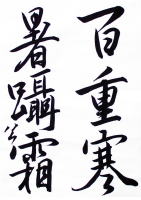 百重寒
暑躡霜